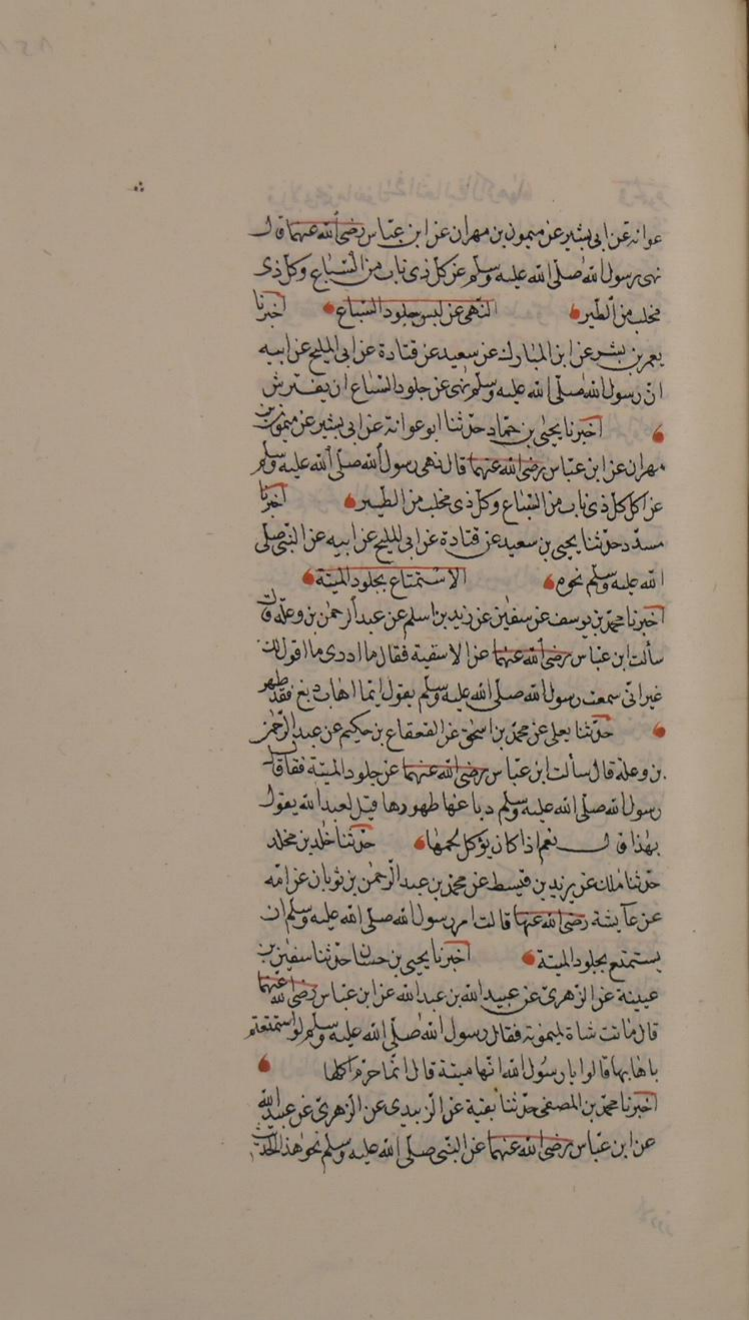 عوانة عن ابى بشير عن ميمون بن مهران عن ابن عباس رضى الله عنهما قال
نهى رسول الله صلى الله عليه وسلم عن كل ذى ناب من السباع وكل ذى
مخلب من الطير النهى عن لبس جلود السباع اخبرنا
يعمر بن بشر عن ابن المبارك عن سعيد عن قتادة عن ابى المليح عن ابيه
ان رسول الله صلى الله عليه وسلم نهى عن جلود السباع ان يفترش
اخبرنا يحيى بن حماد حدثنا ابو عوانة عن ابى بشير عن ميمون بن
مهران عن ابن عباس رضى الله عنهما قال نهى رسول الله صلى الله عليه وسلم
عن اكل كل ذى ناب من السباع وكل ذى مخلب من الطير اخبرنا
مسدد حدثنا يحيى بن سعيد عن قتادة عن ابى المليح عن ابيه عن النبى صلى
الله عليه وسلم نحوه الاستمتاع بجلود الميتة
اخبرنا محمد بن يوسف عن سفين عن زيد بن اسلم عن عبد الرحمن بن وعلة قال
سألت ابن عباس رضى الله عنهما عن الاسقية فقال ما ادرى ما اقول لك
غير انى سمعت رسول الله صلى الله عليه وسلم يقول ايما اهاب دبغ فقد طهر
حدثنا يعلى عن محمد بن اسحق عن القعقاع بن حكيم عن عبد الرحمن
بن وعلة قال سألت ابن عباس رضى الله عنهما عن جلود الميتة فقال قال
رسول الله صلى الله عليه وسلم دباغها طهورها قيل لعبد الله يقول
بهذا قال نعم اذا كان يؤكل لحمها حدثنا خلد بن مخلد
حدثنا ملك عن يزيد بن قسيط عن محمد بن عبد الرحمن بن ثوبان عن امه
عن عآيشة رضى الله عنها قالت امر رسول الله صلى الله عليه وسلم ان
يستمتع بجلود الميتة اخبرنا يحيى بن حسان حدثنا سفين بن
عيينة عن الزهرى عن عبيد الله بن عبد الله عن ابن عباس رضى الله عنهما
قال ماتت شاة لميمونة فقال رسول الله صلى الله عليه وسلم لو استمتعتم
باهابها قالوا يا رسول الله انها ميتة قال انما حرم اكلها
اخبرنا محمد بن المصفى حدثنا بقية عن الزبيدى عن الزهرى عن عبيد الله
عن ابن عباس رضى الله عنهما عن النبى صلى الله عليه وسلم نحو هذا الحديث